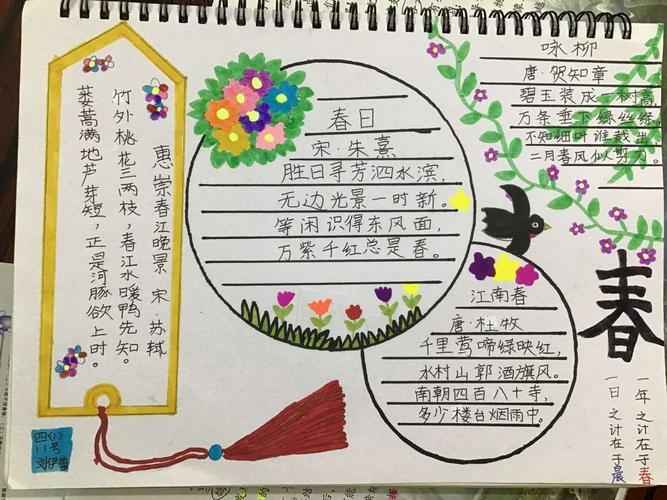 惠崇春江晚景 宋.苏轼
竹外桃花三两枝，春江水暖鸭先知。
蒌蒿满地芦芽短，正是河豚欲上时。
四(1)
11号
春日
宋.朱熹
胜日寻芳泗水滨，
无边光景一时新。
等闲识得东风面，
万紫千红总是春。
咏柳
唐.贺知章
碧玉装成一树高，
万条垂下绿丝绦。
不知细叶谁裁出，
二月春风似剪刀。
江南春
唐.杜牧
千里莺啼绿映红，
水村山郭酒旗风。
南朝四百八十寺，
多少楼台烟雨中。
春
一年之计在于春
一日之计在于晨